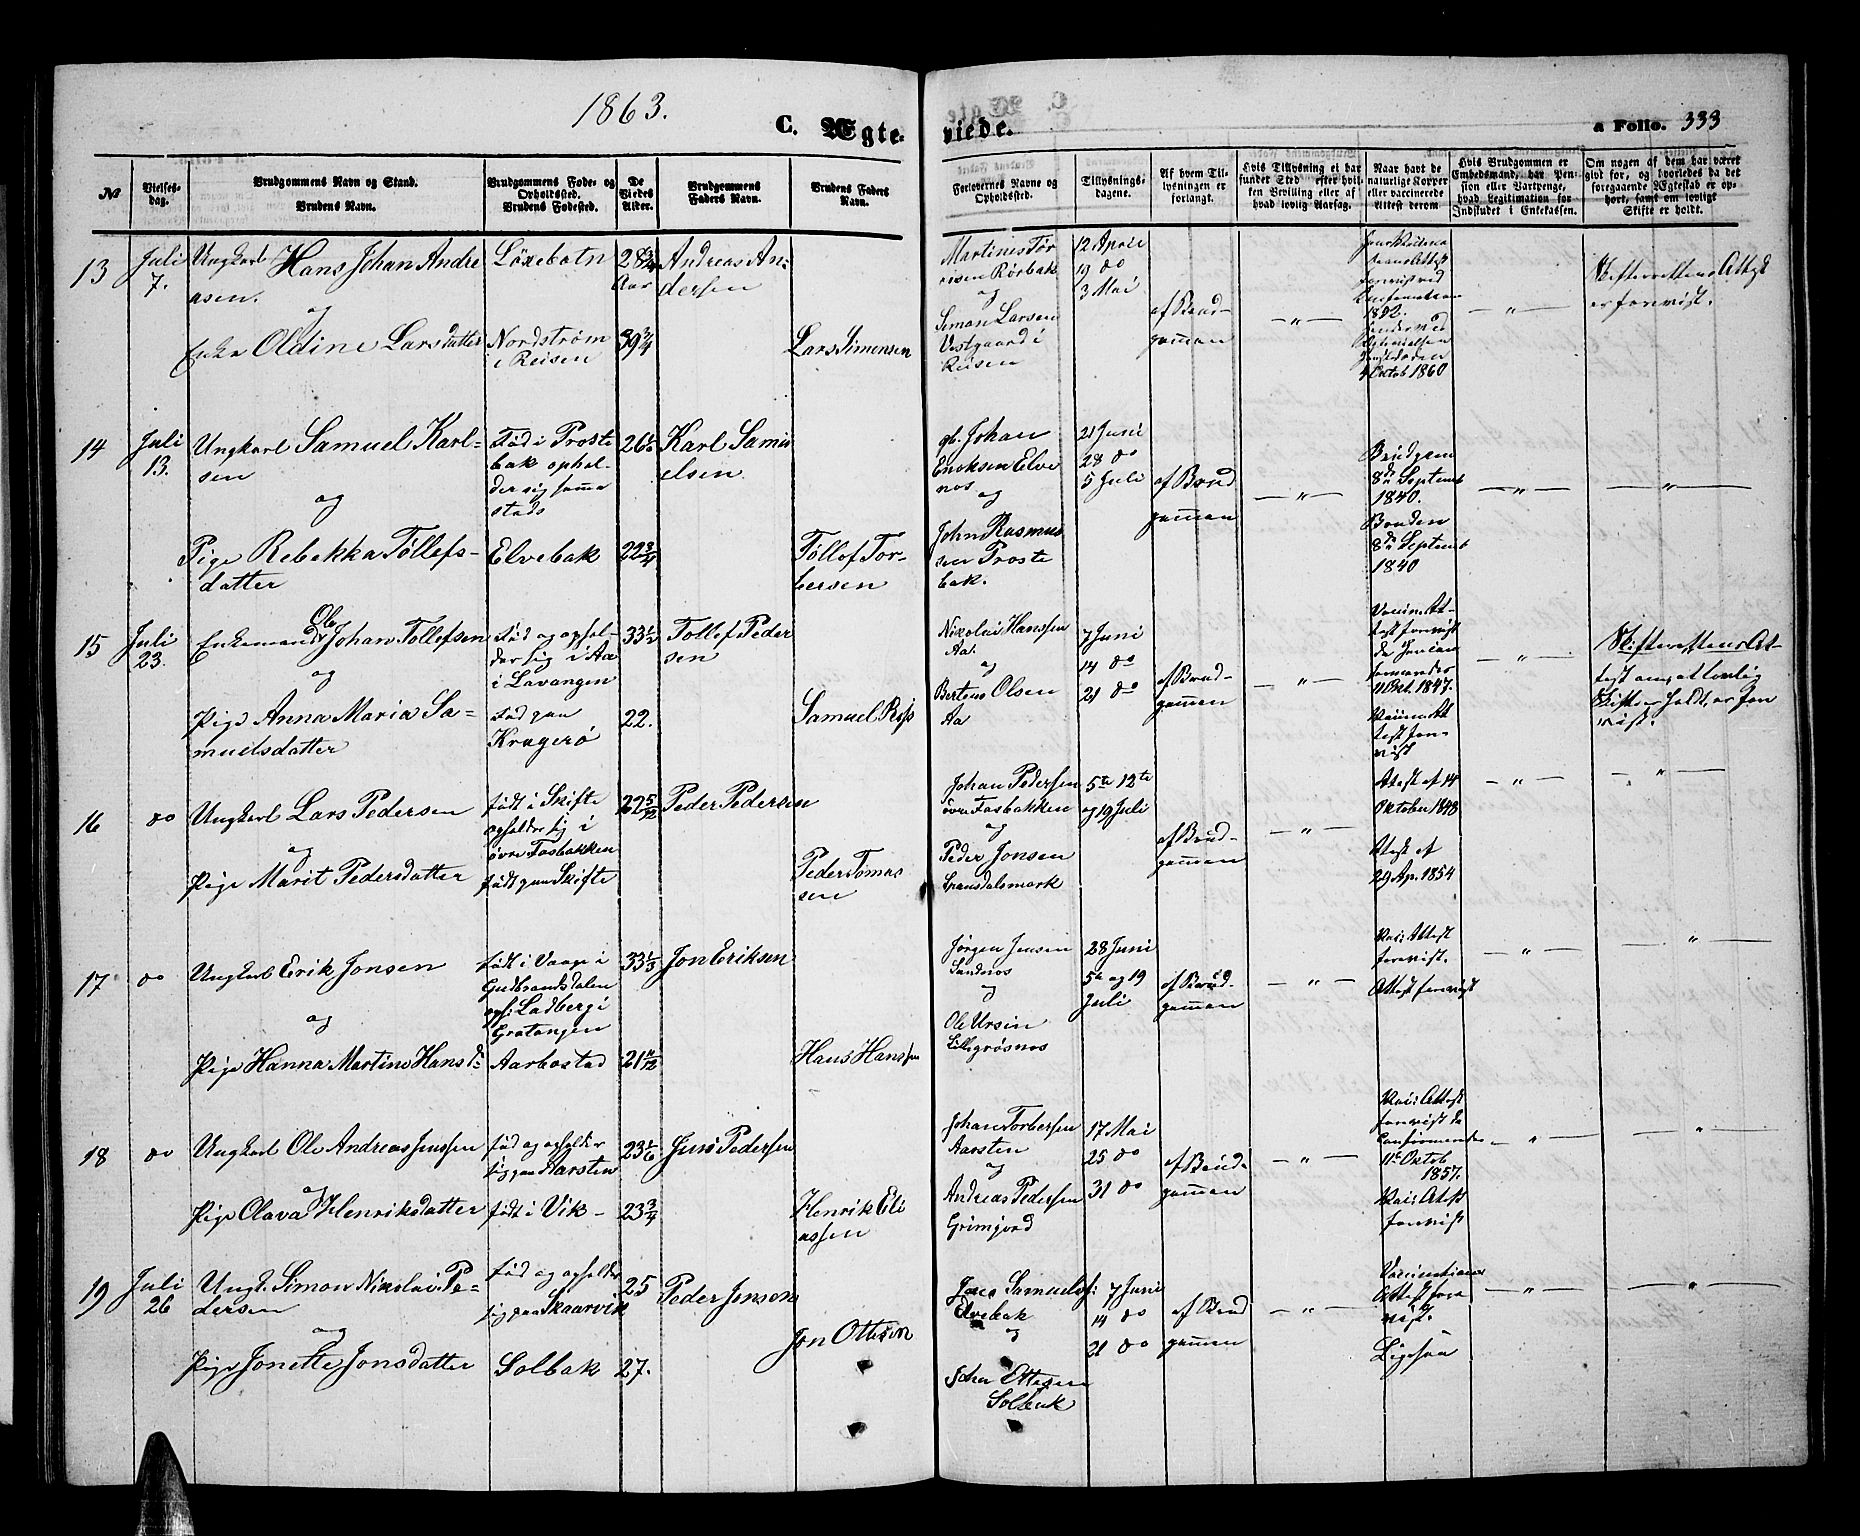 1863.
C. Ægte- viede. a Folio. 333
№
Vielses-
dag.
Brudgommens Navn og Stand.
Brudens Navn.
Brudgommens Føde- og
Opholdssted.
Brudens Fødested.
De
Viedes
Alder.
Brudgommens
Faders Navn.
Brudens Faders
Navn.
Forlovernes Navne og
Opholdssted.
Tillysnings-
dagene.
Af hvem Til-
lysningen er
forlangt.
Hvis Tillysning ei har
funder Sted, efter hvil-
ken Bevilling eller af
hvad lovlig Aarsag.
Naar havt de
naturlige Kopper
eller vaccinerede
Attest derom
Hvis Brudgommen er
Embedsmand, har Pen-
sion eller Vartpenge,
hvad Legitimation for
Indskudet i Enkekassen.
Om nogen af dem har været
givt før, og hvorledes da det
foregaaende Ægteskab er op-
hørt, samt om lovligt
Skifte er holdt.
13
Juli
7.
Ungkarl Hans Johan Andre
asen.
og
Enke Oldine Larsdatter
Løxebotn
Nordstrøm
i Reisen
28 3/4
Aar
39 3/4
Andreas An-
dersen
Lars Simensen
Martinis Tør
risen Rørbak
og
Simon Larsen
Vestgaard i
Reisen
12 April
19 do
3 Mai
af Brud-
gommen
— " —
1860
— " —
Skifterettens Attest
er foreviist.
14
Juli
13.
Ungkarl Samuel Karl-
sen
og
Pige Rebekka Tøllefs-
datter
Fød i Proste
bak ophol-
der sig samme
steds
Elvebak
26 1/2
22 3/4
Karl Samu
elsen
Tøllef Tor-
bersen
gb. Johan
Enoksen Elve
nes
og
John Rasmus
sen Proste
bak.
21 Juni
28 do
5 Juli
af Brud
gommen
— " —
Brudgom
8de Septemb
1840.
Bruden
8de Septemb
1840
— " —
— " —
15
Juli
23.
Enkemand Ole Johan Tollefsen
og
Pige Anna Maria Sa-
muelsdatter
Fød og ophol-
der sig i Aa
i Lavangen
Fød paa
Kragerø
33 1/2
22.
Tollef Peder
sen
Samuel
Nikolai Hanssen
Aa.
og
Bertens Olsen
Aa
7 Juni
14 do
21 do
af Brud-
gommen
— " —
1847.
— " —
Skifterettens At-
test om, at lovlig
Skifte er holdt, er fore
viist.
16
do
Ungkarl Lars Pedersen
og
Pige Marit Pedersdatter
født i Skifte
opholder sig i
øvre Fosbakken
født paa Skifte
22 5/12
Peder Pedersen
Peder Tomas
sen
Johan Pedersen
øvre Fosbakken
og
Peder Jonsen
5te 12te
og 19 Juli
af Brud-
gommen
— " —
Attest af 14
Oktober 1848
Attest af
29 Ap. 1854
— " —
— " —
17
do
Ungkarl Erik Jonsen
og
Pige Hanna Martine Hansd:
født i Vaage i
Gudbrandsdalen
oph: Ladberg i
Gratangen
Aarbostad
33 1/3
Jon Eriksen
Hans Hanssen
Jørgen Jensen
Sandnes
og
Ole Ursin
28 Juni
5te og 19
Juli
af Brud-
gommen
— " —
Vac: Attest
foreviist.
Attest foreviist
— " —
— " —
18
do
Ungkarl Ole Andreas Jenssen
og
Pige Olava Henriksdatter
fød og opholder
sig paa Aarsten
født i Vik -
23 1/6
23 3/4
Jens Pedersen
Henrik Eli
assen
Johan Torbersen
Aarsten
og
Andreas Pedersen
Grimjord
17 Mai
25 do
31 do
af Brud-
gommen
— " —
Vac: Attest
foreviist da
Confirmeret
11te Oktob
1857.
Vac: Attest
foreviist
— " —
— " —
19
Juli
26
Ungk. Simon Nikolai Pe-
dersen
og
Pige Jonette Jonsdatter
Fød og opholder
sig paa Skaarvik
Solbak
25
27.
Peder Jensen
Jon Ottesen
Samuels:
Elvebak
og
Ottesen
Solbak
7 Juni
14 do
21 do
af Brud
gommen
— " —
Vaccinations
Attest fore
viist.
Ligesaa
— " —
— " —